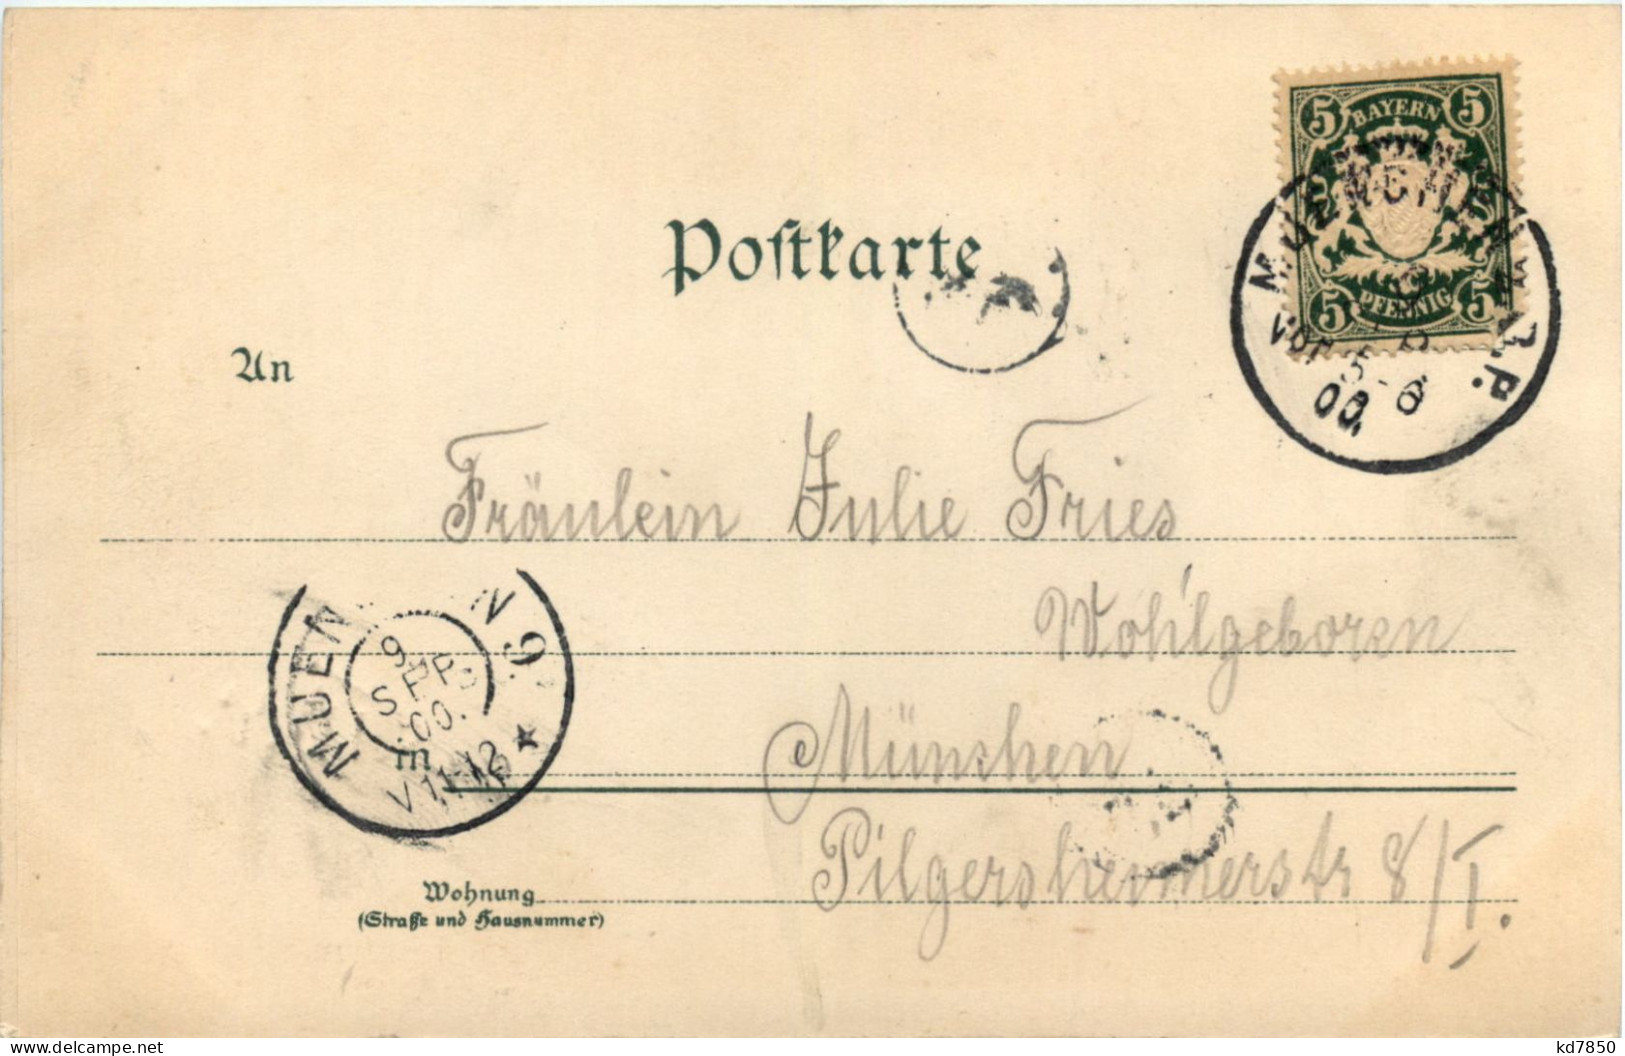 5 BAYERN 5
5 PFENNIG 5
MUENCHEN
VOR 5-6
00.
Postkarte
An
Fräulein Julie Fries
Wohlgeboren
MUEN N 9
9
SEP.
00.
V 11-12
in
München
Pilgersheimerstr 8/I.
Wohnung
(Straße und Hausnummer)
www.delcampe.net
kd7850